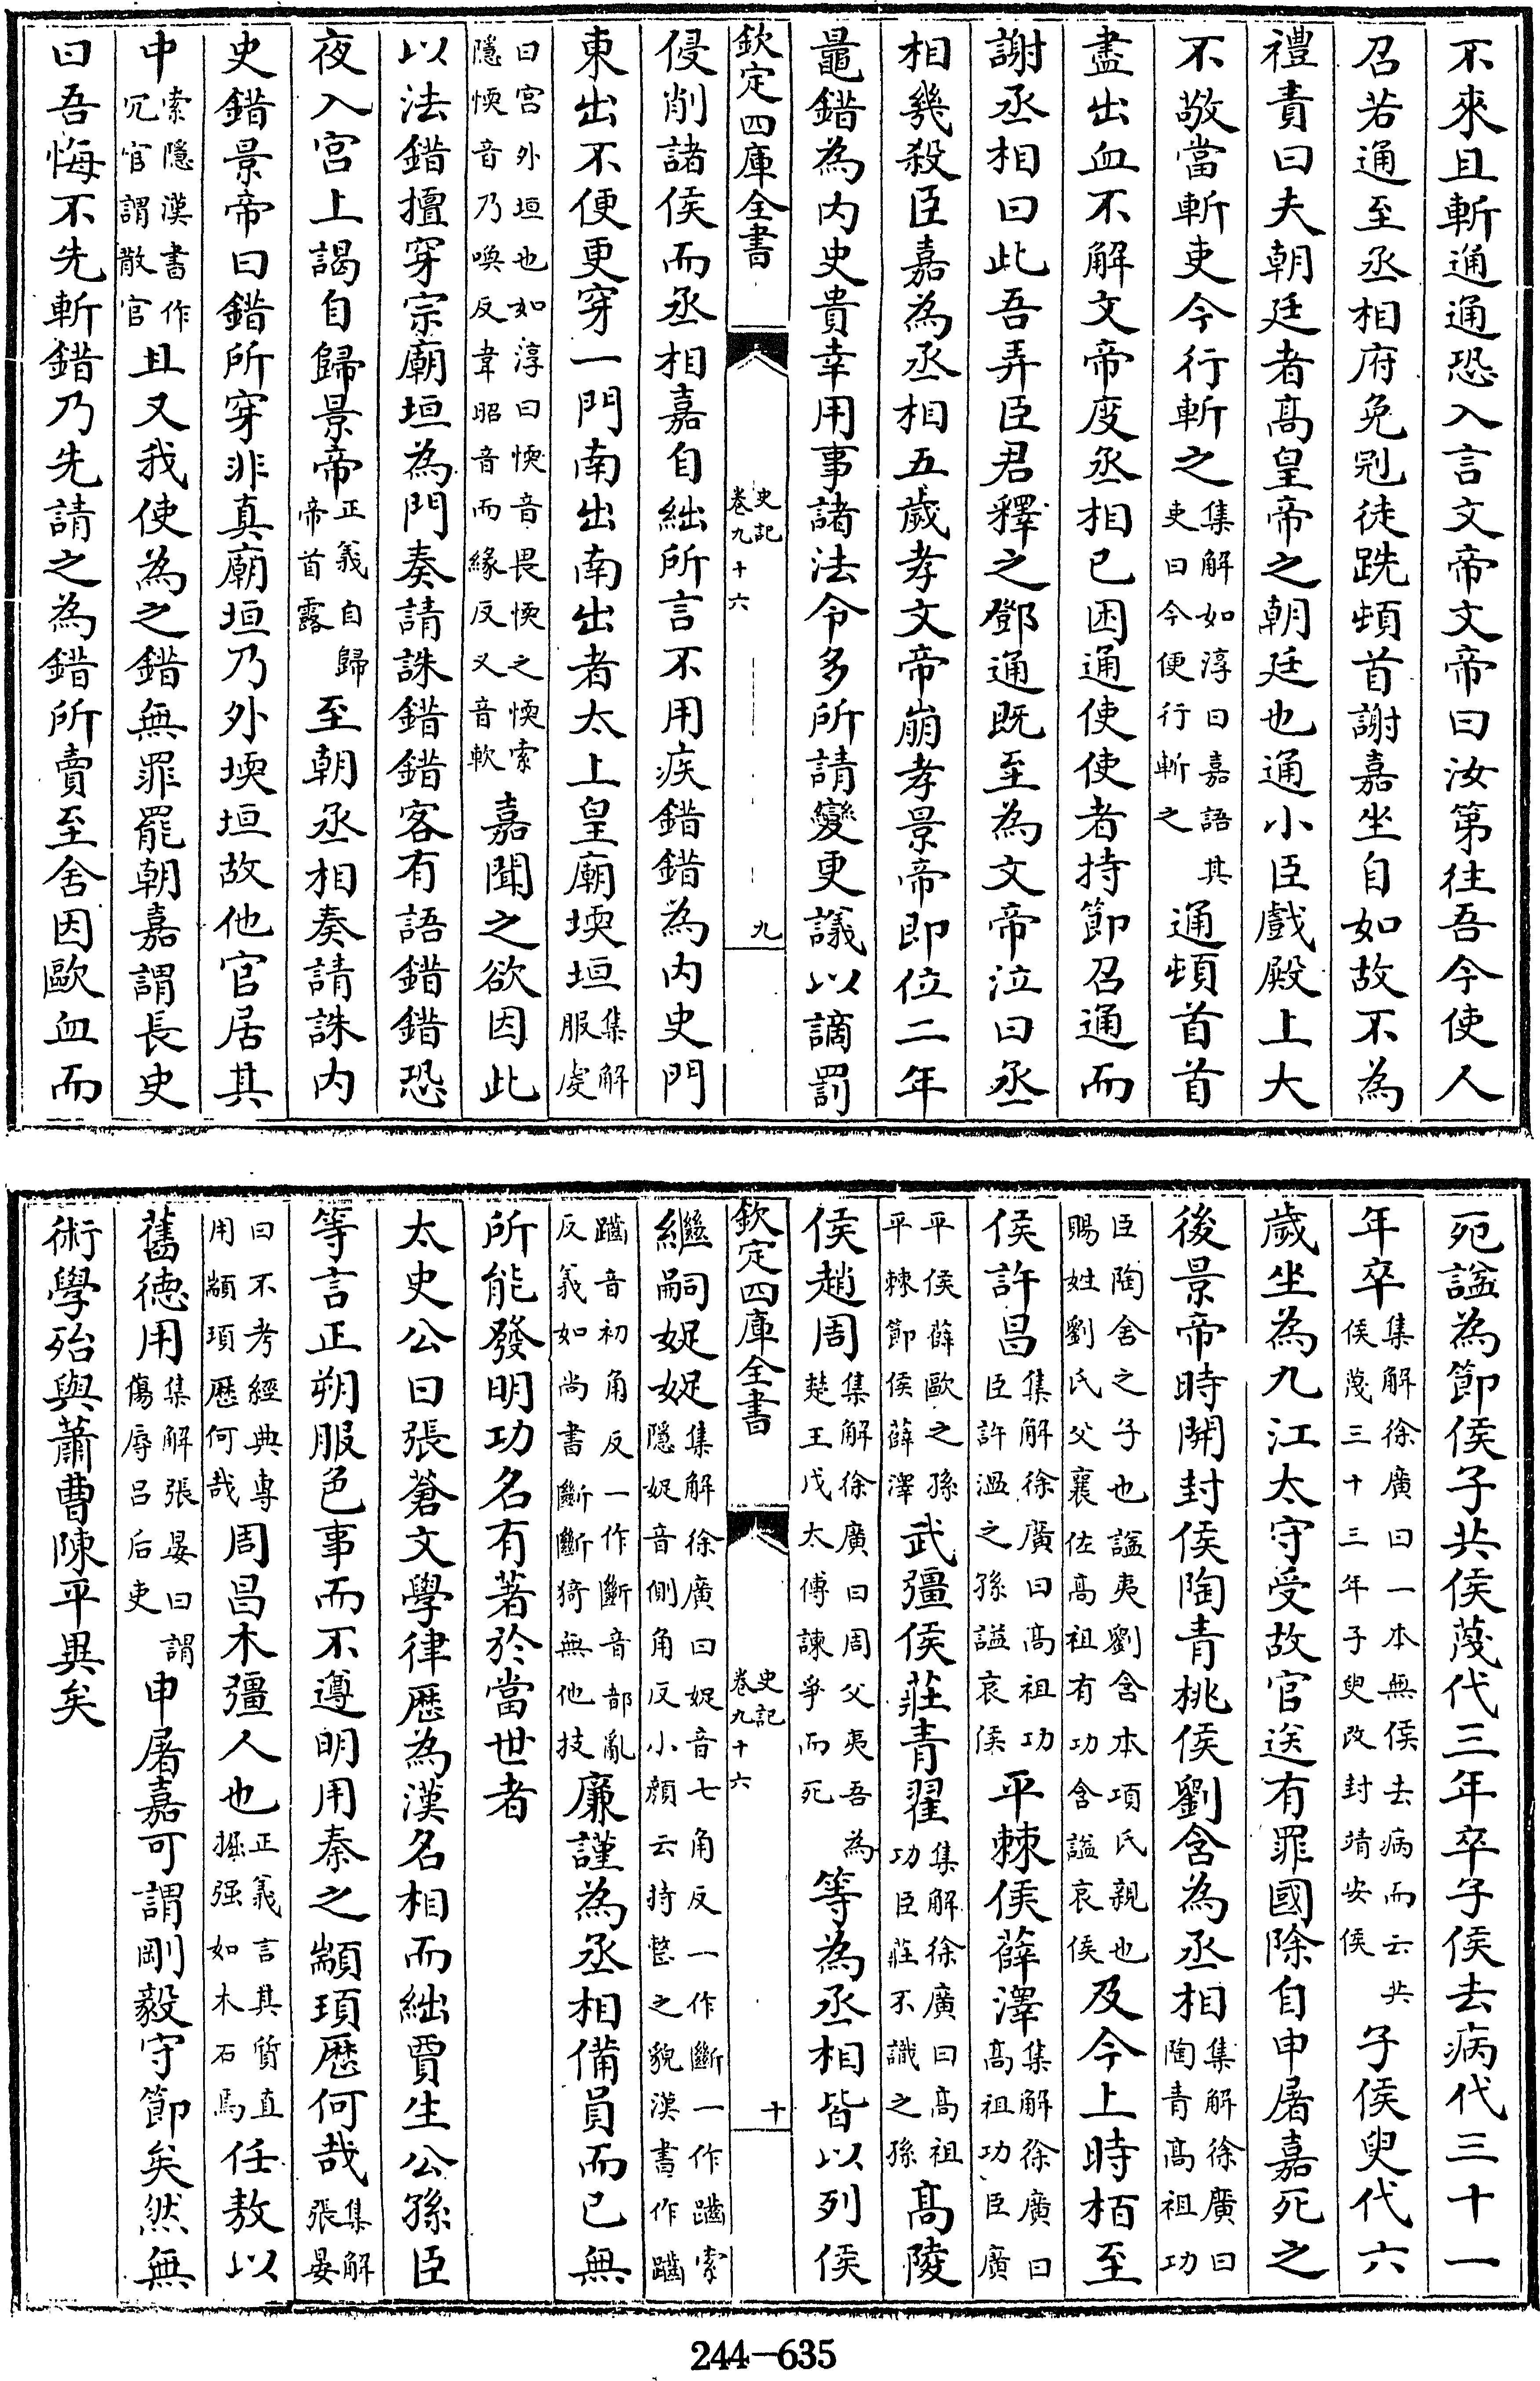 不來且斬通通恐入言文帝文帝曰汝第往吾今使人
召若通至丞相府免冠徒跣頓首謝嘉坐自如故不為
禮責曰夫朝廷者髙皇帝之朝廷也通小臣戲殿上大
不敬當斬吏今行斬之集解如淳曰嘉語其吏曰今便行斬之通頓首首
盡出血不解文帝度丞相已困通使使者持節召通而
謝丞相曰此吾弄臣君釋之鄧通既至為文帝泣曰丞
相幾殺臣嘉為丞相五歲孝文帝崩孝景帝即位二年
鼂錯為内史貴幸用事諸法令多所請變更議以謫罰
欽定四庫全書 史記卷九十六 九
侵削諸侯而丞相嘉自絀所言不用疾錯錯為内史門
東出不便更穿一門南出南出者太上皇廟堧垣集解服虔
曰宫外垣也如淳曰愞音畏愞之愞索隱愞音乃喚反韋昭音而緣反又音軟嘉聞之欲因此
以法錯擅穿宗廟垣為門奏請誅錯錯客有語錯錯恐
夜入宫上謁自歸景帝正義自歸帝首露至朝丞相奏請誅内
史錯景帝曰錯所穿非真廟垣乃外堧垣故他官居其
中索隱漢書作冗官謂散官且又我使為之錯無罪罷朝嘉謂長史
曰吾悔不先斬錯乃先請之為錯所賣至舍因歐血而
死諡為節侯子共侯蔑代三年卒子侯去病代三十一
年卒集解徐廣曰一本無侯去病而云共侯蔑三十三年子臾改封靖安侯子侯臾代六
歲坐為九江太守受故官送有罪國除自申屠嘉死之
後景帝時開封侯陶青桃侯劉舍為丞相集解徐廣曰陶青髙祖功
臣陶舍之子也諡夷劉舍本項氏親也賜姓劉氏父襄佐髙祖有功舍諡哀侯及今上時栢至
侯許昌集解徐廣曰髙祖功臣許温之孫諡哀侯平棘侯薛澤集解徐廣曰髙祖功臣廣
平侯薛歐之孫平棘節侯薛澤武彊侯莊青翟集解徐廣曰髙祖功臣莊不識之孫髙陵
侯趙周集解徐廣曰周父夷吾為楚王戊太傅諫爭而死等為丞相皆以列侯
欽定四庫全書 史記卷九十六 十
繼嗣娖娖集解徐廣曰娖音七角反一作斷一作齪索隱娖音側角反小顔云持整之貌漢書作齪
齪音初角反一作斷音都亂反義如尚書斷斷猗無他技廉謹為丞相備員而已無
所能發明功名有著於當世者
太史公曰張蒼文學律厯為漢名相而絀賈生公孫臣
等言正朔服色事而不遵明用秦之顓頊厯何哉集解張晏
曰不考經典專用顓頊厯何哉周昌木彊人也正義言其質直掘强如木石焉任敖以
舊德用集解張晏曰謂傷辱吕后吏申屠嘉可謂剛毅守節矣然無
術學殆與蕭曹陳平異矣
244-635